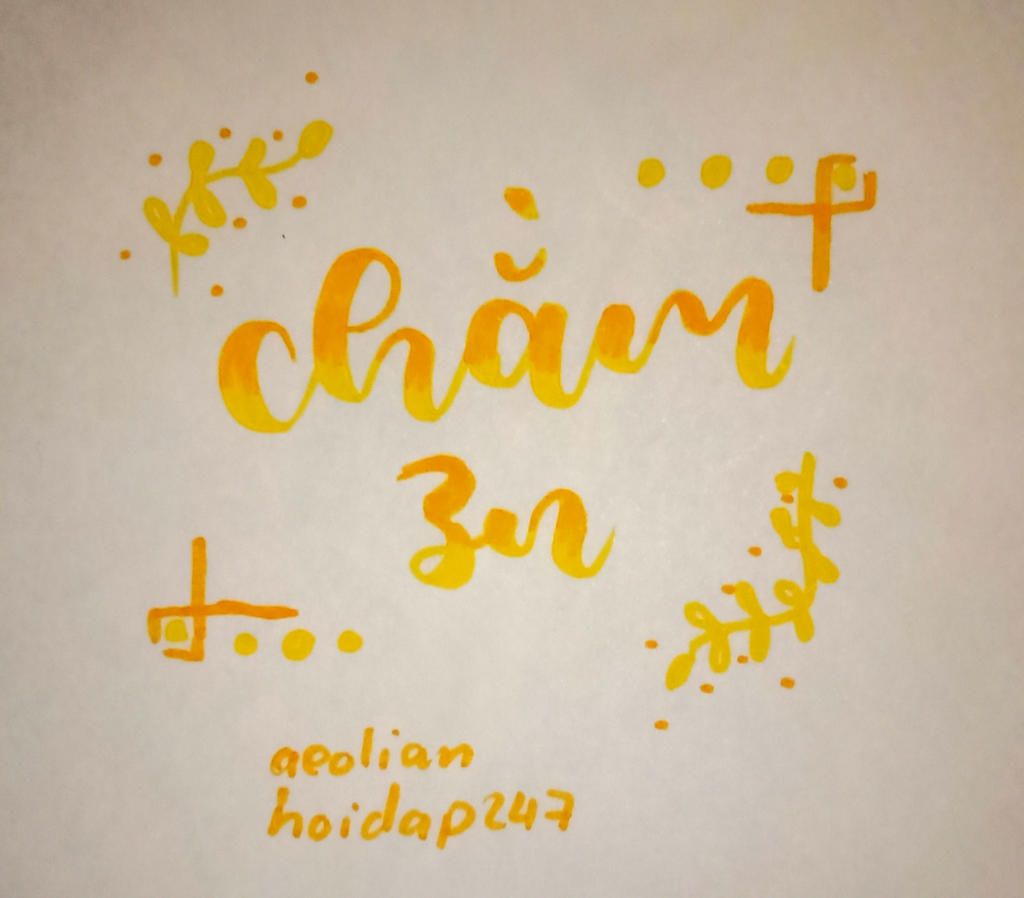 chằm
Zn
aeolian
hoidap247